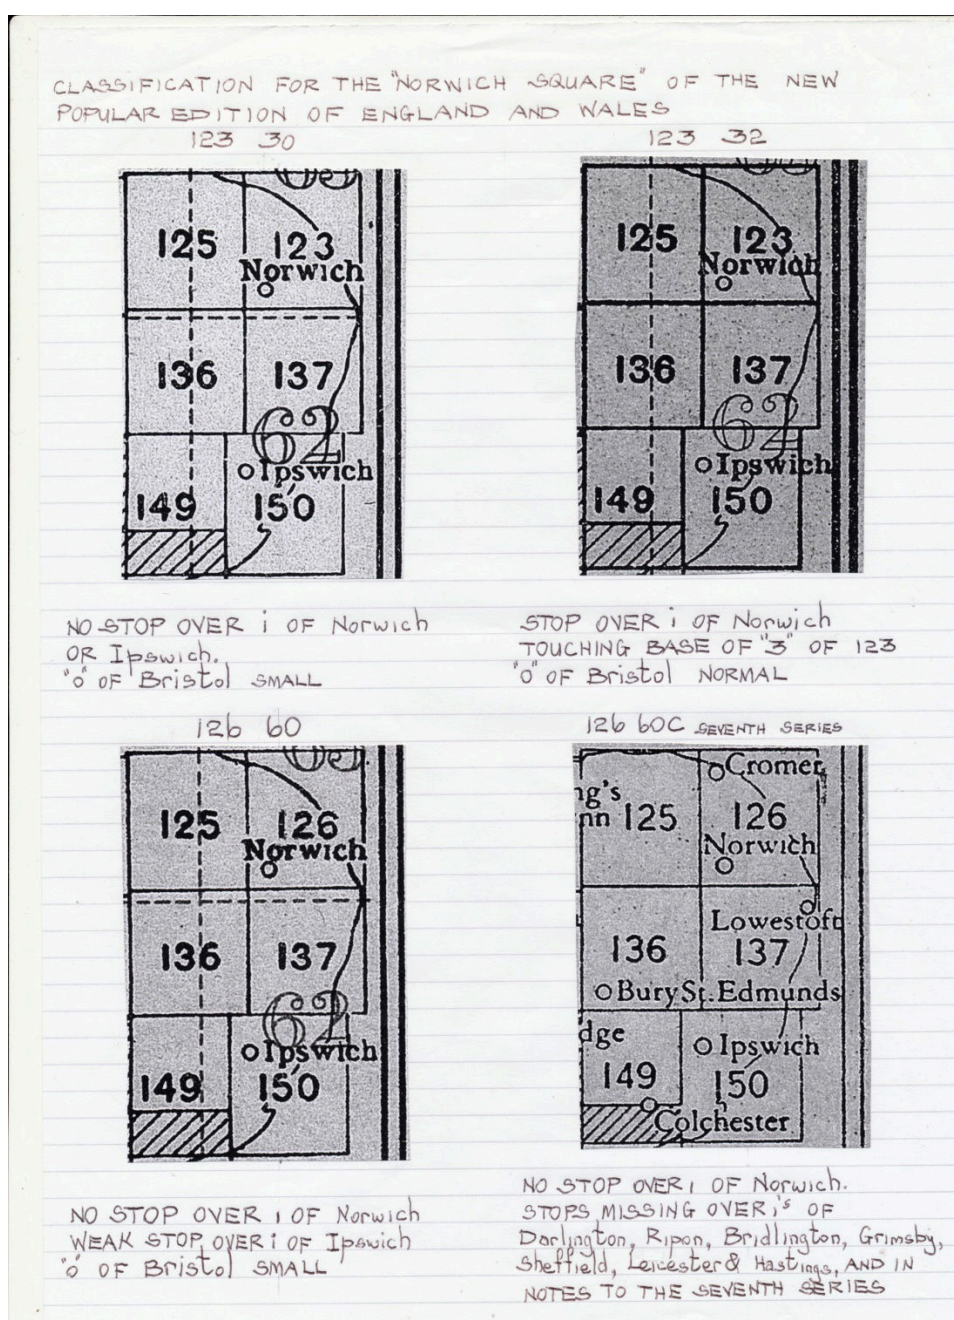 CLASSIFICATION FOR THE "NORWICH SQUARE" OF THE NEW
POPULAR EDITION OF ENGLAND AND WALES
123 30
125 123
Norwich
136 137
62
Ipswich
149 150
NO STOP OVER i OF Norwich
OR Ipswich.
"o" OF Bristol SMALL
123 32
125 123
Norwich
136 137
62
Ipswich
149 150
STOP OVER i OF Norwich
TOUCHING BASE OF "3" OF 123
"o" OF Bristol NORMAL
126 60
125 126
Norwich
136 137
62
Ipswich
149 150
NO STOP OVER ı OF Norwich
WEAK STOP OVER i OF Ipswich
"o" OF Bristol SMALL
126 60C SEVENTH SERIES
Cromer
ng's
nn 125 126
Norwich
Lowestoft
136 137
Bury St. Edmunds
dge
Ipswich
149 150
Colchester
NO STOP OVER ı OF Norwich.
STOPS MISSING OVER i's OF
Darlington, Ripon, Bridlington, Grimsby,
Sheffield, Leicester & Hastings, AND IN
NOTES TO THE SEVENTH SERIES